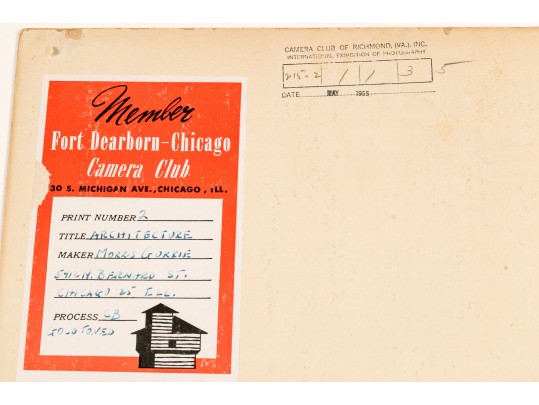 CAMERA CLUB OF RICHMOND, (VA.), INC.
INTERNATIONAL EXHIBITION OF PHOTOGRAPHY
215-2 / / 3 5
DATE MAY 1955
Member
Fort Dearborn-Chicago
Camera Club
30 S. MICHIGAN AVE., CHICAGO, ILL.
PRINT NUMBER 2
TITLE ARCHITECTURE
MAKER MORRIS GURRIE
N. BERNARD ST.
CHICAGO 25 ILL.
PROCESS CB
GOLD TONED